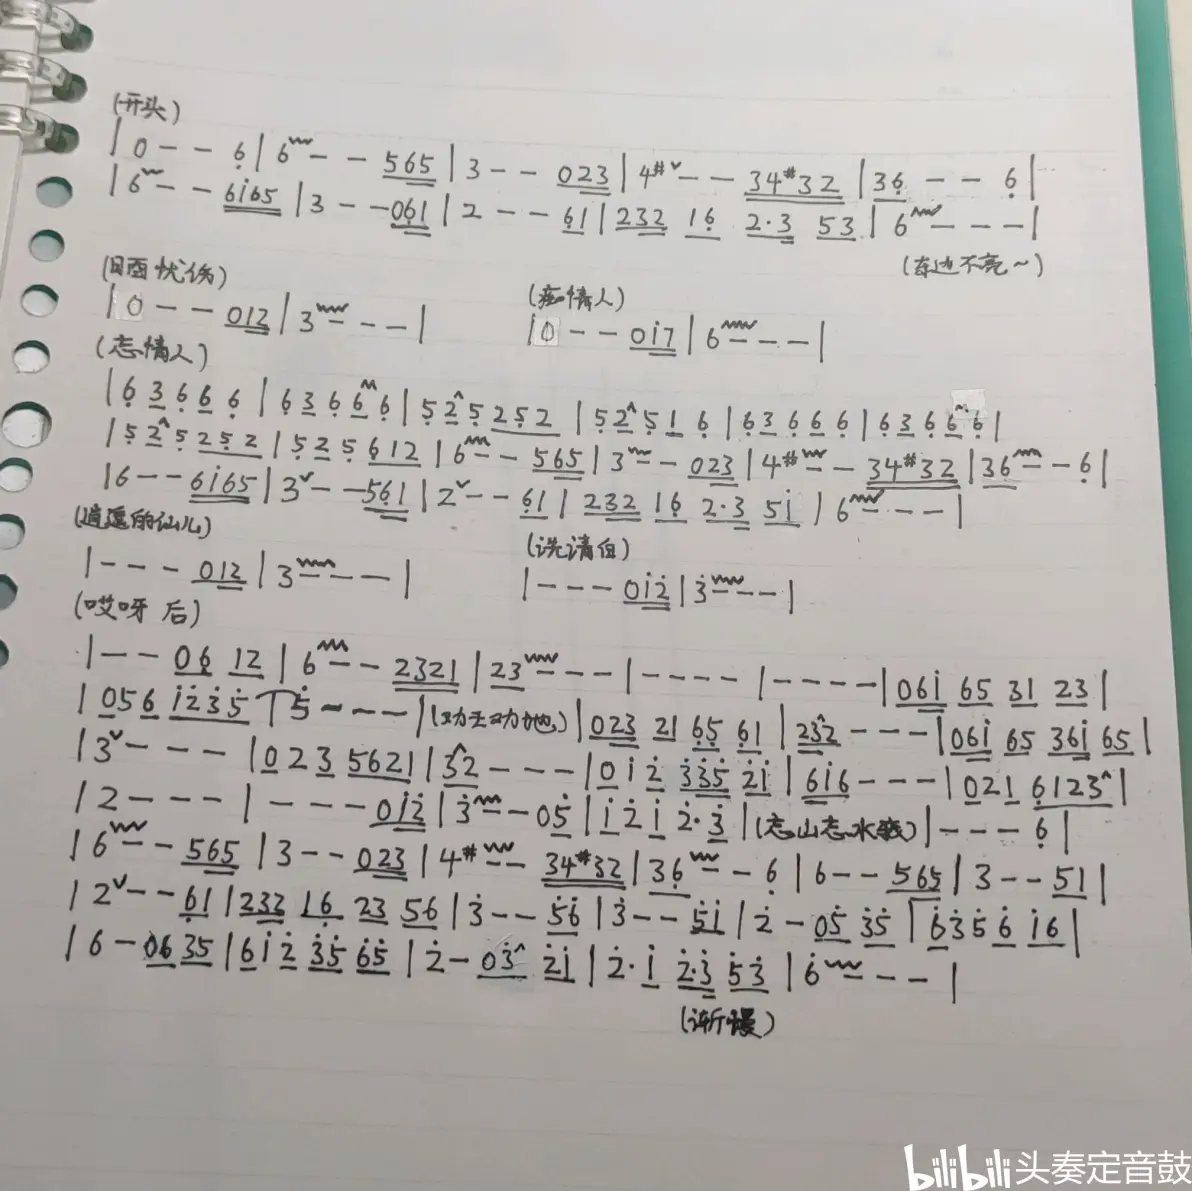 (开头)
| 0 - - 6̣ | 6 - - 565 | 3 - - 023 | 4# - - 34#32 | 36̣ - - 6̣ |
| 6 - - 6i̇65 | 3 - - 06̣1 | 2 - - 6̣1 | 232 16̣ 2·3 53 | 6 - - - |
(东边不亮~)
(暗自忧伤)
| 0 - - 012 | 3 - - - |
(痴情人)
| 0 - - 0i̇7 | 6 - - - |
(忘情人)
| 6̣ 3 6̣ 6̣ 6̣ | 6̣ 3 6̣ 6̣ 6̣ | 5̣ 2^ 5̣ 2 5̣ 2 | 5̣ 2^ 5̣ 1 6̣ | 6̣ 3 6̣ 6̣ 6̣ | 6̣ 3 6̣ 6̣ 6̣ |
| 5̣ 2^ 5̣ 2 5̣ 2 | 5̣ 2 5̣ 6̣ 1 2 | 6 - - 565 | 3 - - 023 | 4# - - 34#32 | 36 - - 6̣ |
| 6 - - 6i̇65 | 3 - - 5̣6̣1 | 2 - - 6̣1 | 232 16̣ 2·3 5i̇ | 6 - - - |
(逍遥的仙儿)
| - - - 012 | 3 - - - |
(洗清白)
| - - - 0i̇2̇ | 3̇ - - - |
(哎呀 后)
| - - 06̣ 12 | 6 - - 2321 | 23 - - - | - - - - | - - - - | 06i̇ 65 31 23 |
| 056 i̇2̇3̇5̇ 5̇ - - - | (劝天劝地) | 023 21 6̣5̣ 6̣1 | 232 - - - | 06i̇ 65 36i̇ 65 |
| 3 - - - | 023 5621 | 3^2 - - - | 0i̇2̇ 3̇3̇5̇ 2̇i̇ | 6i̇6 - - - | 021 6̣123^ |
| 2 - - - | - - - 0i̇2̇ | 3̇ - - 05̇ | i̇ 2̇ i̇ 2̇·3̇ | (忘山忘水我) | - - - 6̣ |
| 6 - - 565 | 3 - - 023 | 4# - - 34#32 | 36̣ - - 6̣ | 6 - - 565 | 3 - - 51 |
| 2 - - 6̣1 | 232 16̣ 23 56 | 3̇ - - 5̇6̇ | 3̇ - - 5̇i̇ | 2̇ - 05̇ 3̇5̇ | 6̇3̇5̇6̇ i̇6 |
| 6 - 06 35 | 6i̇2̇ 3̇5̇ 6̇5̇ | 2̇ - 03̇^ 2̇i̇ | 2̇·i̇ 2̇·3̇ 5̇3̇ | 6̇ - - - |
(渐慢)
bilibili 头奏定音鼓